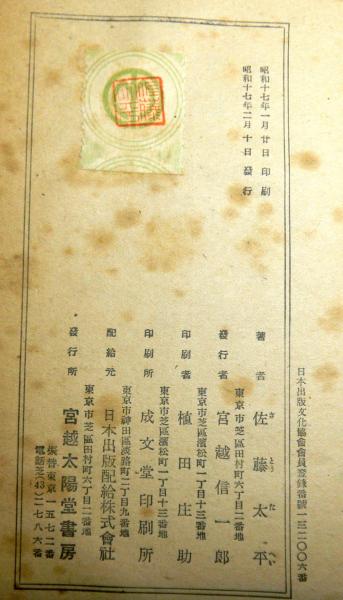 日本出版文化協會會員登錄番號一三二〇〇六番
昭和十七年一月廿日印刷
昭和十七年二月十日發行
著者 佐藤太平
さとうたへい
東京市芝區田村町六丁目二番地
發行者 宮越信一郎
東京市芝區濱松町一丁目十三番地
印刷者 植田庄助
東京市芝區濱松町一丁目十三番地
印刷所 成文堂印刷所
東京市神田區淡路町二丁目九番地
配給元 日本出版配給株式會社
東京市芝區田村町六丁目二番地
發行所 宮越太陽堂書房
振替東京一五七二番
電話芝(43)二七八六番